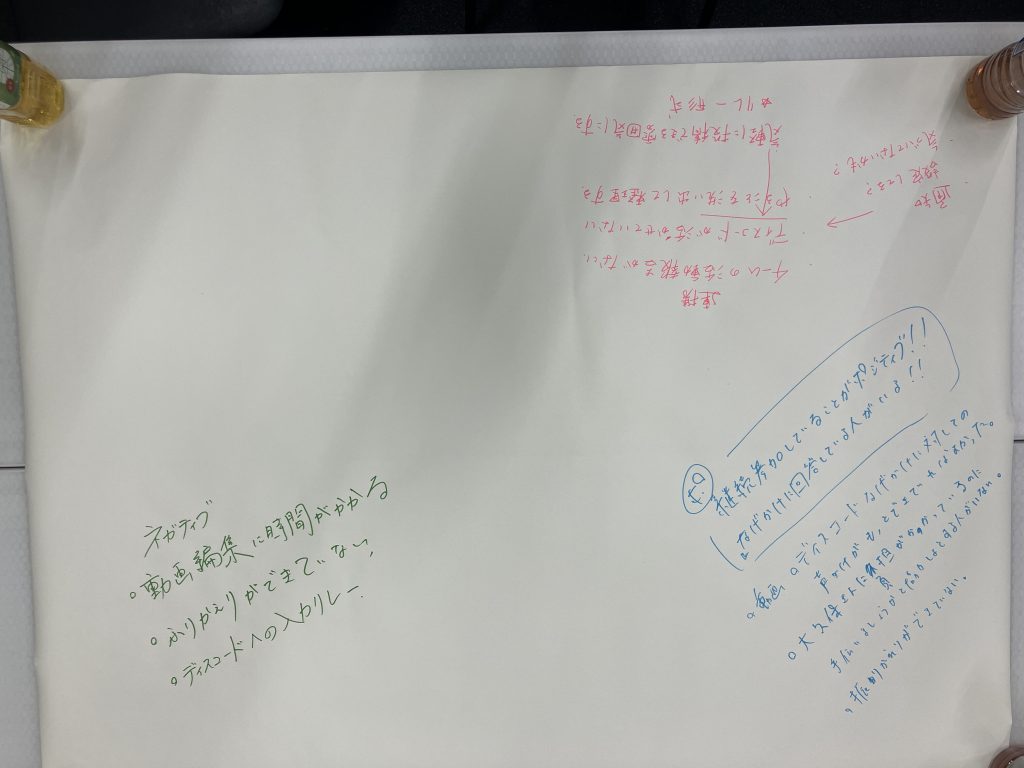 連携
・チームの活動報告がない
・ディスコードが活かせていない
やることを洗い出して整理する
気軽に投稿できる雰囲気にする
☆リレー形式
通知
設定してる?
・気づいてないかも?
継続参加していることがポジティブ!!
なげかけに回答している人がいるよ!!
・動画
○ディスコードなげかけに対しての
声かけがもっとできてればよかった。
○大久保さんに負担がかかっているのに
手伝いましょうかと代わりしようとする人がいない。
・振りかえりができていない。
ネガティブ
○動画編集に時間がかかる
○ふりかえりができていない
○ディスコードへの入力リレー